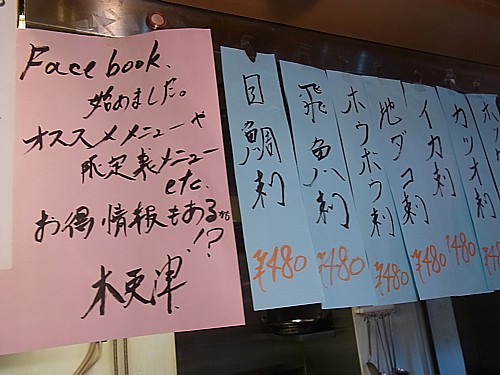 Facebook.
始めました。
オススメメニューや
限定裏メニュー
etc.
お得情報もあるかも
!?
木更津
目鯛刺
¥480
飛魚刺
¥480
ホウボウ刺
¥480
地ダコ刺
¥480
イカ刺
¥480
カツオ刺
¥480